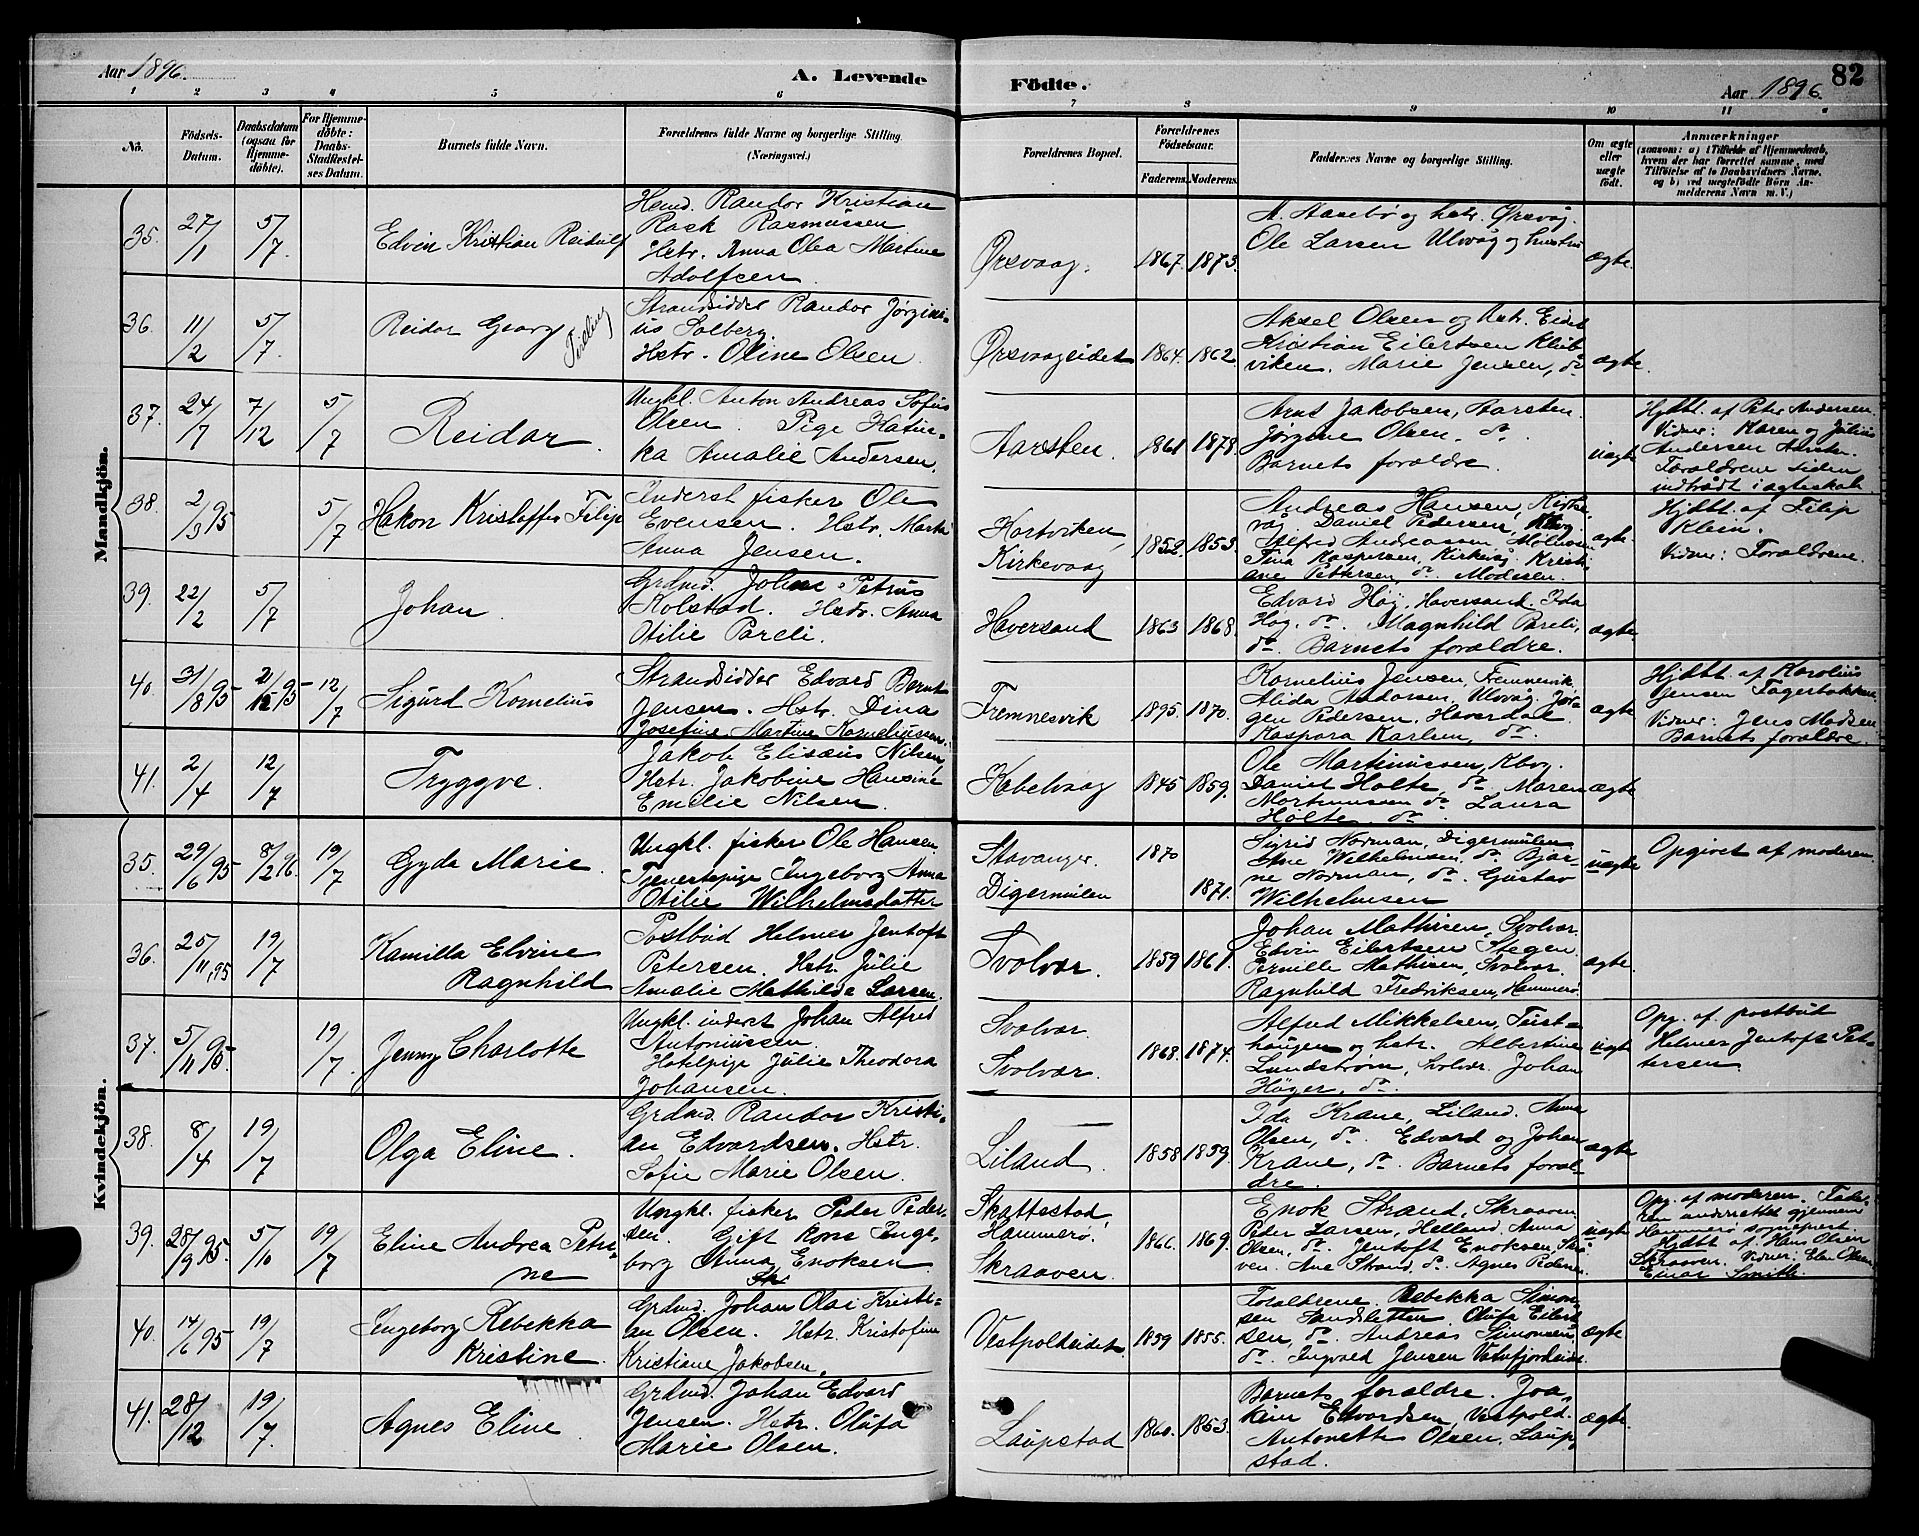 Aar 1896.
A. Levende
Födte.
82
Aar 1896.
1 2 3 4 5 6 7 8 9 10 11
No.
Födsels-
Datum.
Daabsdatum
(ogsaa for
Hjemme-
døbte).
For Hjemme-
døbte:
Daabs-
Stadfæstel-
ses Datum.
Barnets fulde Navn.
Forældrenes fulde Navne og borgerlige Stilling.
(Næringsvei.)
Forældrenes Bopæl.
Forældrenes
Födselsaar.
Faderens. Moderens.
Faddernes Navne og borgerlige Stilling.
Om ægte
eller
uægte
født.
Anmærkninger
(saasom: a) i Tilfælde af Hjemmedaab,
hvem der har forrettet samme, med
Tilföielse af to Daabsvidners Navne.
og b) ved uægtefödte Börn An-
melderens Navn m. V.)
Mandkjön.
35. 27/1 5/7
Edvin Kristian Reidulf
Hemd. Randor Kristian
Rask Rasmussen
Hstr. Anna Olea Martine
Adolfsen
Ørsvaag.
1867. 1873.
M. Aasebö og hstr. Ørsvåg.
Ole Larsen Ulvåg og hustru
ægte.
36. 11/2 5/7
Reidar Georg
Tvilling
Strandsidder Randor Jørgini-
us Solberg
Hstr. Oline Olsen.
Ørsvaageidet
1864. 1862.
Aksel Olsen og hstr. Eidet
Kristian Eilertsen Klub-
viken. Marie Jensen, do
ægte.
37. 24/7 7/12 5/7
Reidar.
Ungkl. Anton Andreas Sofus
Olsen. Pige Katin-
ka Amalie Andersen.
Aarsten.
1861 1878.
Arnt Jakobsen, Aarsten.
Jørgine Olsen. do.
Barnets forældre.
uægte
Hjdbt. af Peter Andersen.
Vidner: Karen og Julius
Andersen Aarsten.
Forældrene siden
indtrådt i ægteskab.
38. 2/3 95 5/7
Hakon Kristoffer Filip
Inderst fisker Ole
Evensen. Hstr. Marta
Anna Jensen.
Hortviken,
Kirkevaag
1852. 1853.
Andreas Hansen, Kirke-
våg. Daniel Pedersen, Kbvg.
Alfred Andreassen Molnosen
Tina Kaspersen, Kirkvåg. Kristi-
ane Pettersen, do. Moderen.
ægte.
Hjdbt. af Filip
Klein.
Vidner: Forældrene
39. 22/2 5/7
Johan.
Grdmd. Johan Petrus
Kolstad. Hstr. Anna
Otilie Pareli.
Haversand
1863 1868.
Edvard Høg, Haversand. Ida
Høg. do. Magnhild Pareli,
do. Barnets forældre.
ægte.
40. 31/8 95 2/12 95 12/7
Sigurd Kornelius
Strandsidder Edvard Bernt
Jensen. Hstr. Dina
Josefine Martine Korneliussen.
Fremnesvik
1895. 1870.
Kornelius Jensen, Fremnesvik
Alida Andersen, Ulvåg. Jør-
gen Pedersen, Haverdal.
Kaspara Karlsen, do.
ægte.
Hjdbt. af Karolius
Jensen Fagerbakken.
Vidner: Jens Madsen
Barnets forældre.
41. 2/4 12/7
Tryggve.
Jakob Elisæus Nilsen,
Hstr. Jakobine Hansine
Emelie Nilsen.
Kabelvaag
1845 1859.
Ole Martinussen, Kbvg.
Daniel Holte, do. Maren
Martinussen do. Laura
Holte. do.
ægte
Kvindekjön.
35. 29/6 95 8/2 96. 19/7
Gyda Marie.
Ungkl. fisker Ole Hansen
Tjenestepige Ingeborg Anna
Otilie Wilhelmsdatter
Stavanger.
Digermulen
1870
1871.
Sigrid Norman, Digermulen
Ane Wilhelmsen, do. Bjar-
ne Norman, do. Gustav
Wilhelmsen
uægte
Opgivet af moderen.
36. 25/11, 95 19/7
Kamilla Elvine
Ragnhild
Postbud Helmer Jentoft
Petersen. Hstr. Julie
Amalie Mathilde Larsen.
Svolvær.
1859 1861
Johan Mathisen, Svolvær.
Edvin Eilertsen Stegen
Pernille Mathisen, Svolvær.
Ragnhild Fredriksen, Hammerö.
ægte.
37. 5/11 95. 19/7
Jenny Charlotte
Ungkl. inderst Johan Alfred
Antoniussen.
Hotelpige Julie Theodora
Johansen.
Svolvær.
Svolvær.
1868. 1874.
Alfred Mikkelsen, Teist-
haugen og hstr. Albertine
Lundstrøm, Svolvær. Johan
Höyer, do.
uægte
Opg. af postbud
Helmer Jentoft Pet-
tersen
38. 8/4 19/7
Olga Eline.
Grdmd. Randor Kristi-
an Edvardsen. Hstr.
Sofie Marie Olsen.
Liland.
1858 1859.
Ida Krane, Liland. Anna
Olsen, do. Edvard og Johan
Krane, do. Barnets foræl-
dre.
ægte
39. 28/9 95. 5/10 19/7
Eline Andrea Petri-
ne
Ungkl. fisker Peder Peder-
sen. Gift kone Inge-
borg Anna Enoksen
Skattestad
Hammerö.
Skraaven.
1866 1869.
Enok Strand, Skraaven.
Peder Larsen, Helland. Anna
Olsen, do. Jentoft Enoksen, Skrå-
ven. Ane Strand, do. Agnes Pedersen.
uægte
Opg. af moderen. Fade-
ren underrettet gjennem
Hammerö sogneprest.
Hjdbt. af Hans Olsen
Skraaven. Vidner: Elen Olsen
Einar Smith.
40. 14/6 95 19/7
Ingeborg Rebekka
Kristine.
Grdmd. Johan Olai Kristi-
an Olsen. Hstr. Kristofine
Kristiane Jakobsen.
Vestpoldeidet.
1859 1855.
Forældrene. Rebekka Simon-
sen Sandsletten. Olufa Eilert-
sen, do. Andreas Simonsen,
do. Ingvald Jensen Vatnfjordeidet.
ægte
41. 28/12 19/7.
Agnes Eline.
Grdmd. Johan Edvard
Jensen. Hstr. Olufa
Marie Olsen.
Laupstad
1860. 1863.
Barnets forældre. Joa-
kim Edvardsen, Vestpold.
Antonette Olsen. Laup-
stad.
ægte.